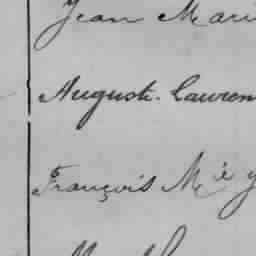 Jean Mari
August. Lauren
François Mie y